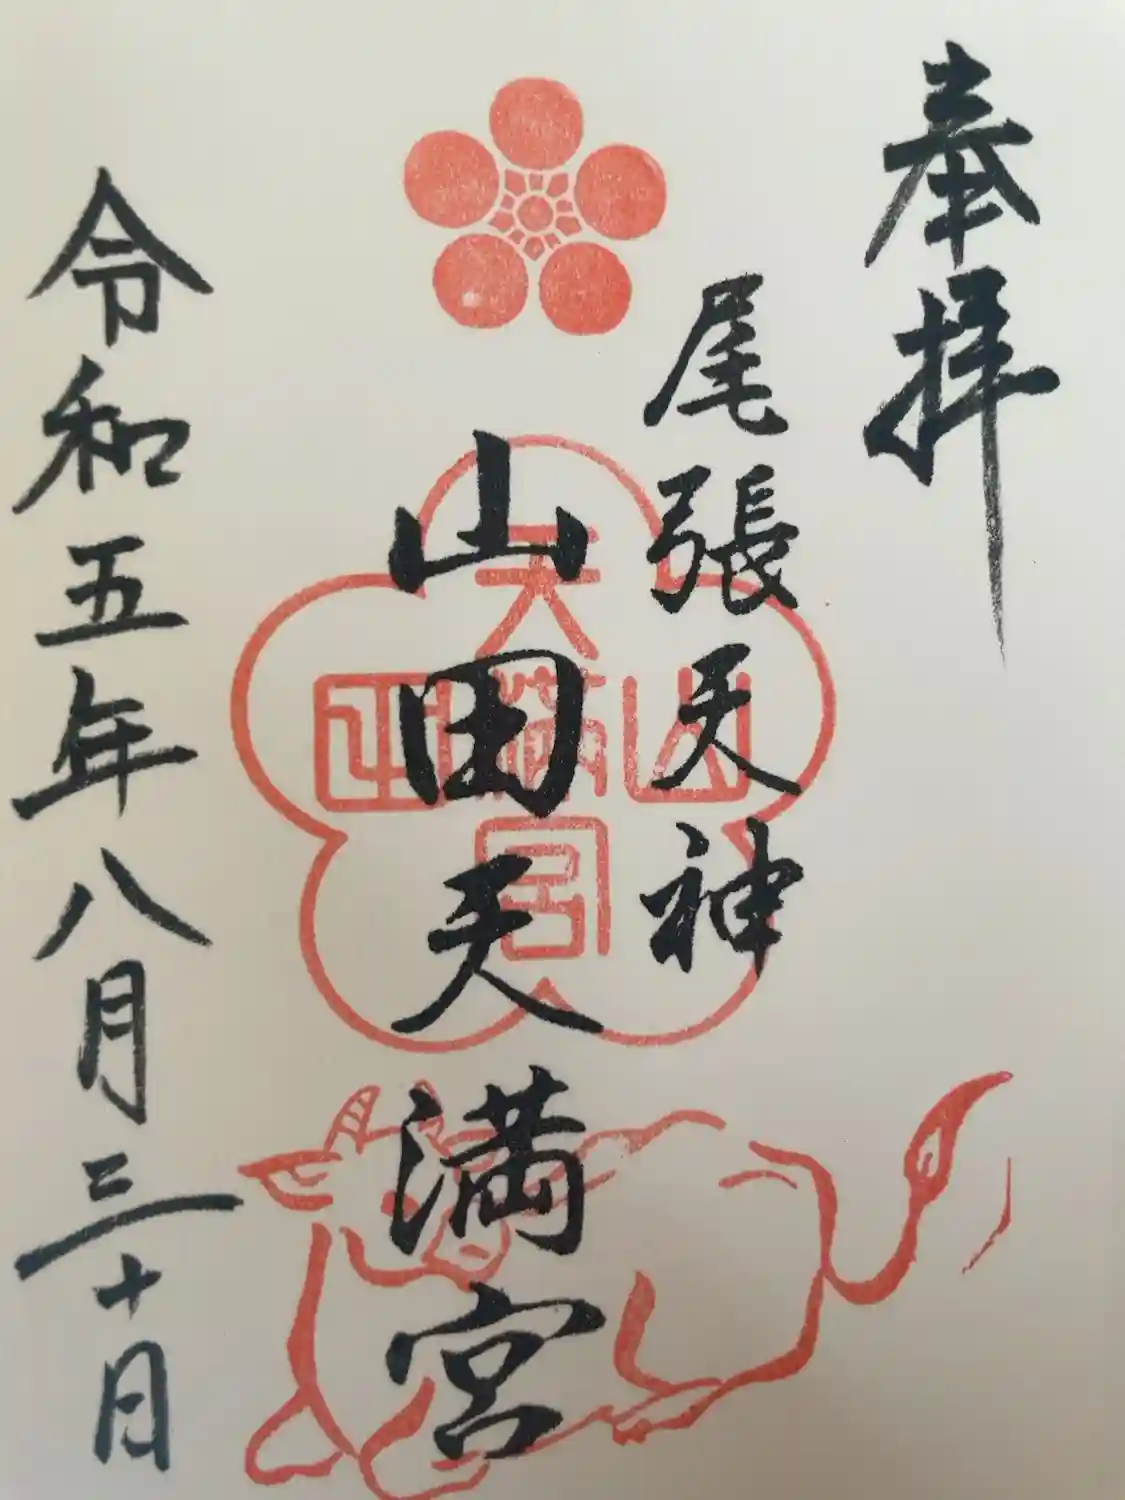 奉拝
尾張天神
山田天満宮
令和五年八月三十日
山
天
満
宮
田